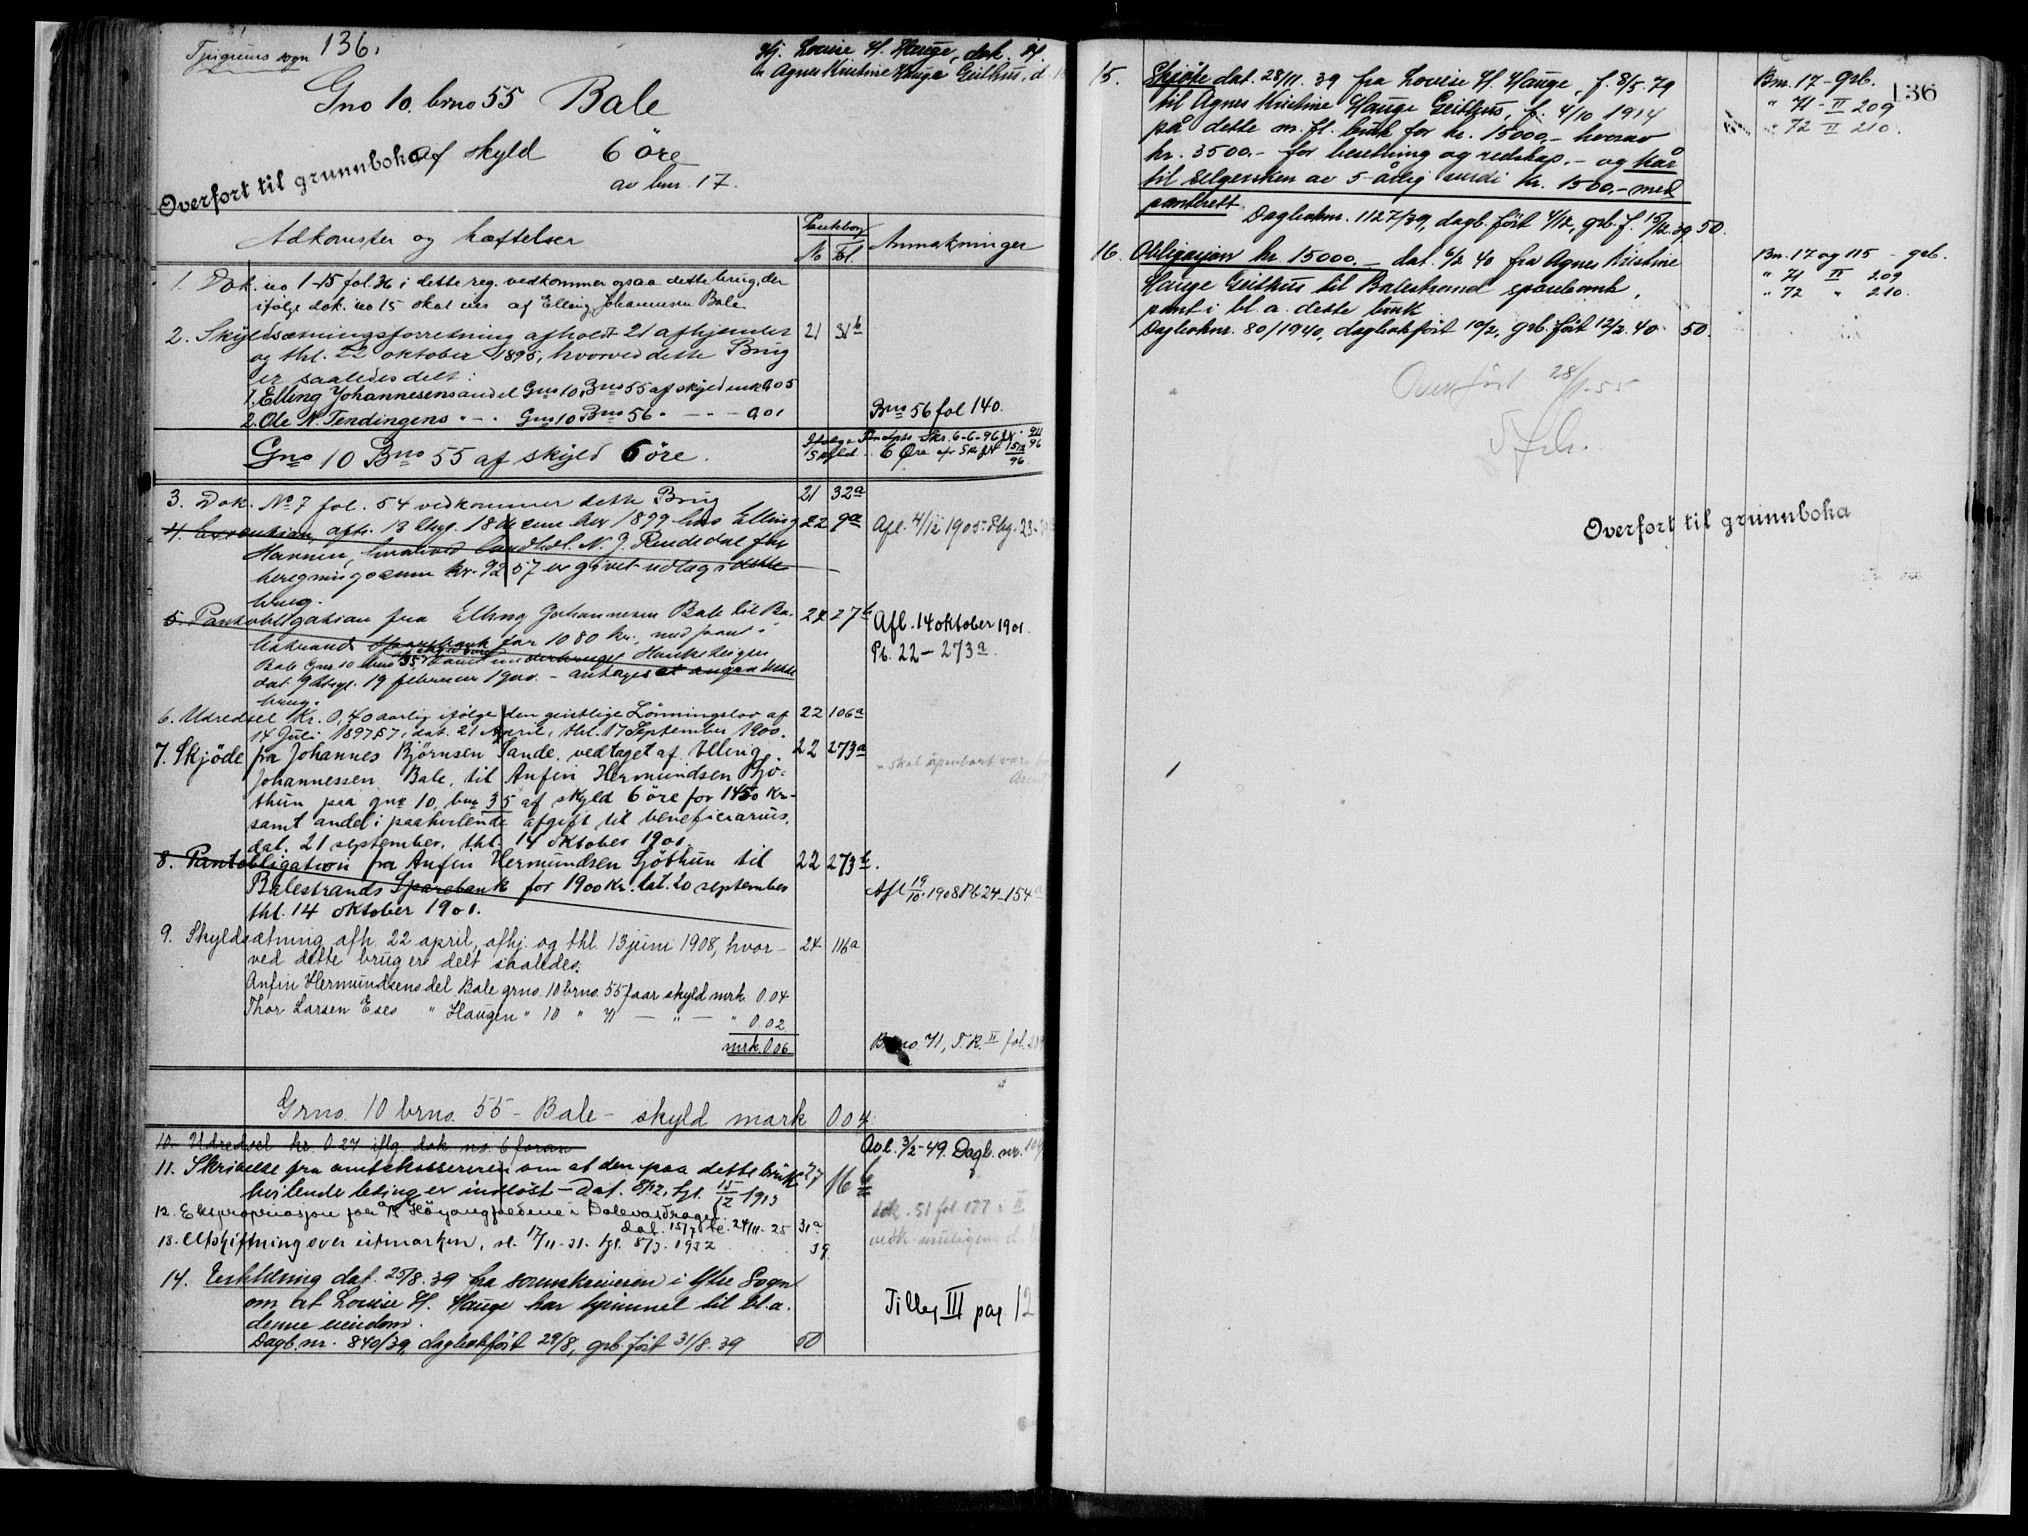 Tjugums sogn 136.
Hj. Louise H. Hauge, dok. 14.
" Agnes Kristine Hauge Geithus, d. 1
Gno 10. brno 55 Bale
af skyld 6 öre
av bnr. 17.
Overført til grunnboka
Adkomster og hæftelser
Pantebog
No Fol.
Anmærkninger
1. Dok. no 1-15 fol. 36 i dette reg. vedkommer ogsaa dette brug, der
ifølge dok. no 15 skal eies af Elling Johannesen Bale
2. Skyldsætningsforretning afholdt 21 afhjemlet 21 31b
og thl. 22 oktober 1895, hvorved dette Brug
er saaledes delt:
1. Elling Johannesens andel Gno 10, Bno 55 af skyld mrk 0.05
2. Ole N. Tendingens - " - Gno 10 Bno 56 " - - - 0.01 Bno 56 fol 140.
Gno 10 Bno 55 af skyld 6 öre.
Ifølge Skr. 6-6-96
Skyld 6 Øre
3. Dok. No 7 fol. 54 vedkommer dette Brug 21 32a
4. afh. 13 hos Elling 22 9a Afl. 4/12 1905 Pbg. 23
Hannen, hvorved landhdl. N. J. Rendedal for
beregningssum kr. 92.57 er givet udlæg i dette
brug.
5. Pantobligation fra Elling Johannesen Bale til Ba- 22 27b Afl. 14 oktober 1901.
lestrand Sparebank for 1080 kr. med pant i Pb. 22 - 273a.
Bale Gno 10 bno 35
dat. 9 thgl. 19 februar 1900. - antages at angaa dette
brug.
6. Udredsel Kr. 0,40 aarlig ifølge den geistlige Lønningslov af 22 106a
14 Juli 1897 § 7, dat. 21 April, thl. 17 September 1900.
7. Skjöde fra Johannes Bjørnsen Sande, vedtaget af Elling 22 273a
Johannessen Bale, til Anfin Hermundsen Sjö-
thun paa gno 10, bno 35 af skyld 6 öre for 1450 Kr.
samt andel i paahvilende afgift til beneficiarius,
dat. 21 september, thl. 14 oktober 1901.
8. Pantobligation fra Anfin Hermundsen Sjöthun til 22 273b.
Balestrands Sparebank for 1900 Kr. dat. 20 september Afl 19/10 1908 Pb 24-154a
thl. 14 oktober 1901.
9. Skyldsætning afh. 22 april, afhj. og thl. 13 juni 1908, hvor- 24 116a
ved dette brug er delt saaledes:
Anfin Hermundsens del Bale grno. 10 brno. 55 faar skyld mrk. 0.04
Thor Larsen Eses " Haugen " 10 " 71 - " - " 0.02
mrk. 0.06 Brno 71, P.R. II fol. 209
Grno. 10 brno. 55 - Bale - skyld mark 0 04.
10. Udredsel kr. 0.27 iflg. dok. no. 6 foran Avl. 3/2-49. Dagb. nr. 109
11. Skrivelse fra amtskassereren om at den paa dette bruk 27 16b
hvilende leding er indløst - Dat. 8/12, tgl. 15/12 1913
12. Ekspropriasjon for A/S Höyangfaldene i Dalevasdraget
dat. 15/7 tl. 24/11-25 31a
13. Utskiftning over utmarken, sl. 17/11-31. tgl. 8/3-1932 39
14. Erklæring dat. 25/8.39 fra sorenskriveren i Ytre Sogn
om at Louise H. Hauge har hjemmel til bl.a.
denne eiendom.
Dagb.nr. 840/39, dagbokført 29/8, grb. ført 31/8.39 50
Tilleg III pag. 12
136
15. Skjøte dat. 28/11.39 fra Louise H. Hauge, f. 8/5-79 Bnr. 17 - grb.
til Agnes Kristine Hauge Geithus, f. 4/10 1914 " 71 - II 209
på dette m.fl. bruk for kr. 15000,- hvorav " 72 II 210.
kr. 3500,- for besetning og redskap,- og kår
til selgersken av 5-årlig verdi kr. 1500,- med
panterett. Dagboknr. 1127/39, dagb. ført 4/12, grb. f. 15/12.39 50.
16. Obligasjon kr. 15000,- dat. 6/2 40 fra Agnes Kristine Bnr. 17 og 115 - grb.
Hauge Geithus til Balestrand sparebank, " 71 II 209
pant i bl.a. dette bruk " 72 " 210.
Dagboknr. 80/1940, dagbokført 10/2, grb. ført 12/2.40 50.
Overført 28/1-55
Overført til grunnboka